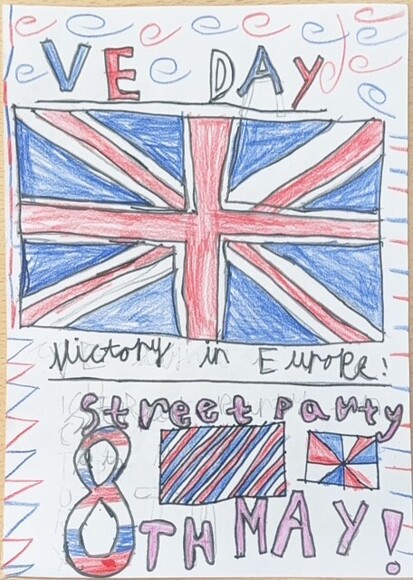 VE DAY
Victory in Europe!
Street Party
8TH MAY!